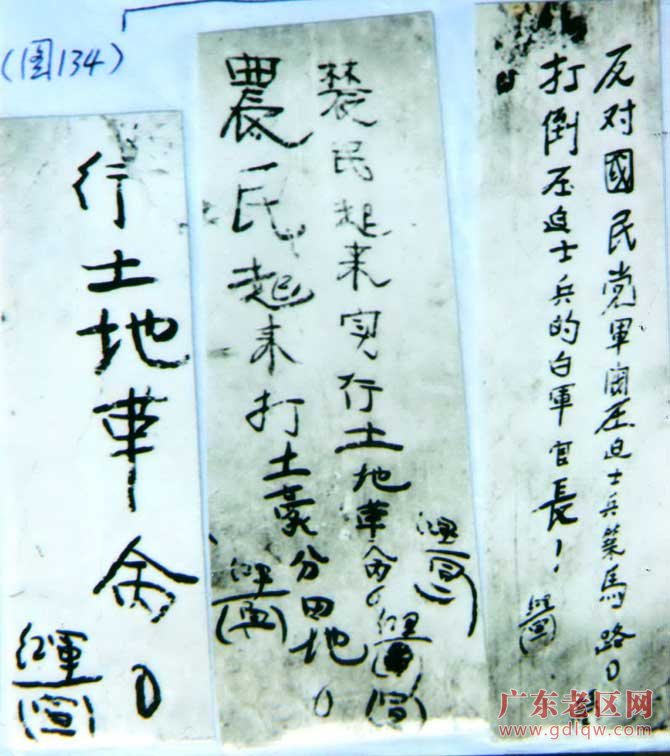 (图134)
反对國民党軍阀压迫士兵築馬路!
打倒压迫士兵的白軍官長!
農民起来实行土地革命!
紅軍(宣)
農民起来打土豪分田地!
紅軍(宣)
行土地革命!
紅軍(宣)
广东老区网
www.gdlqw.com